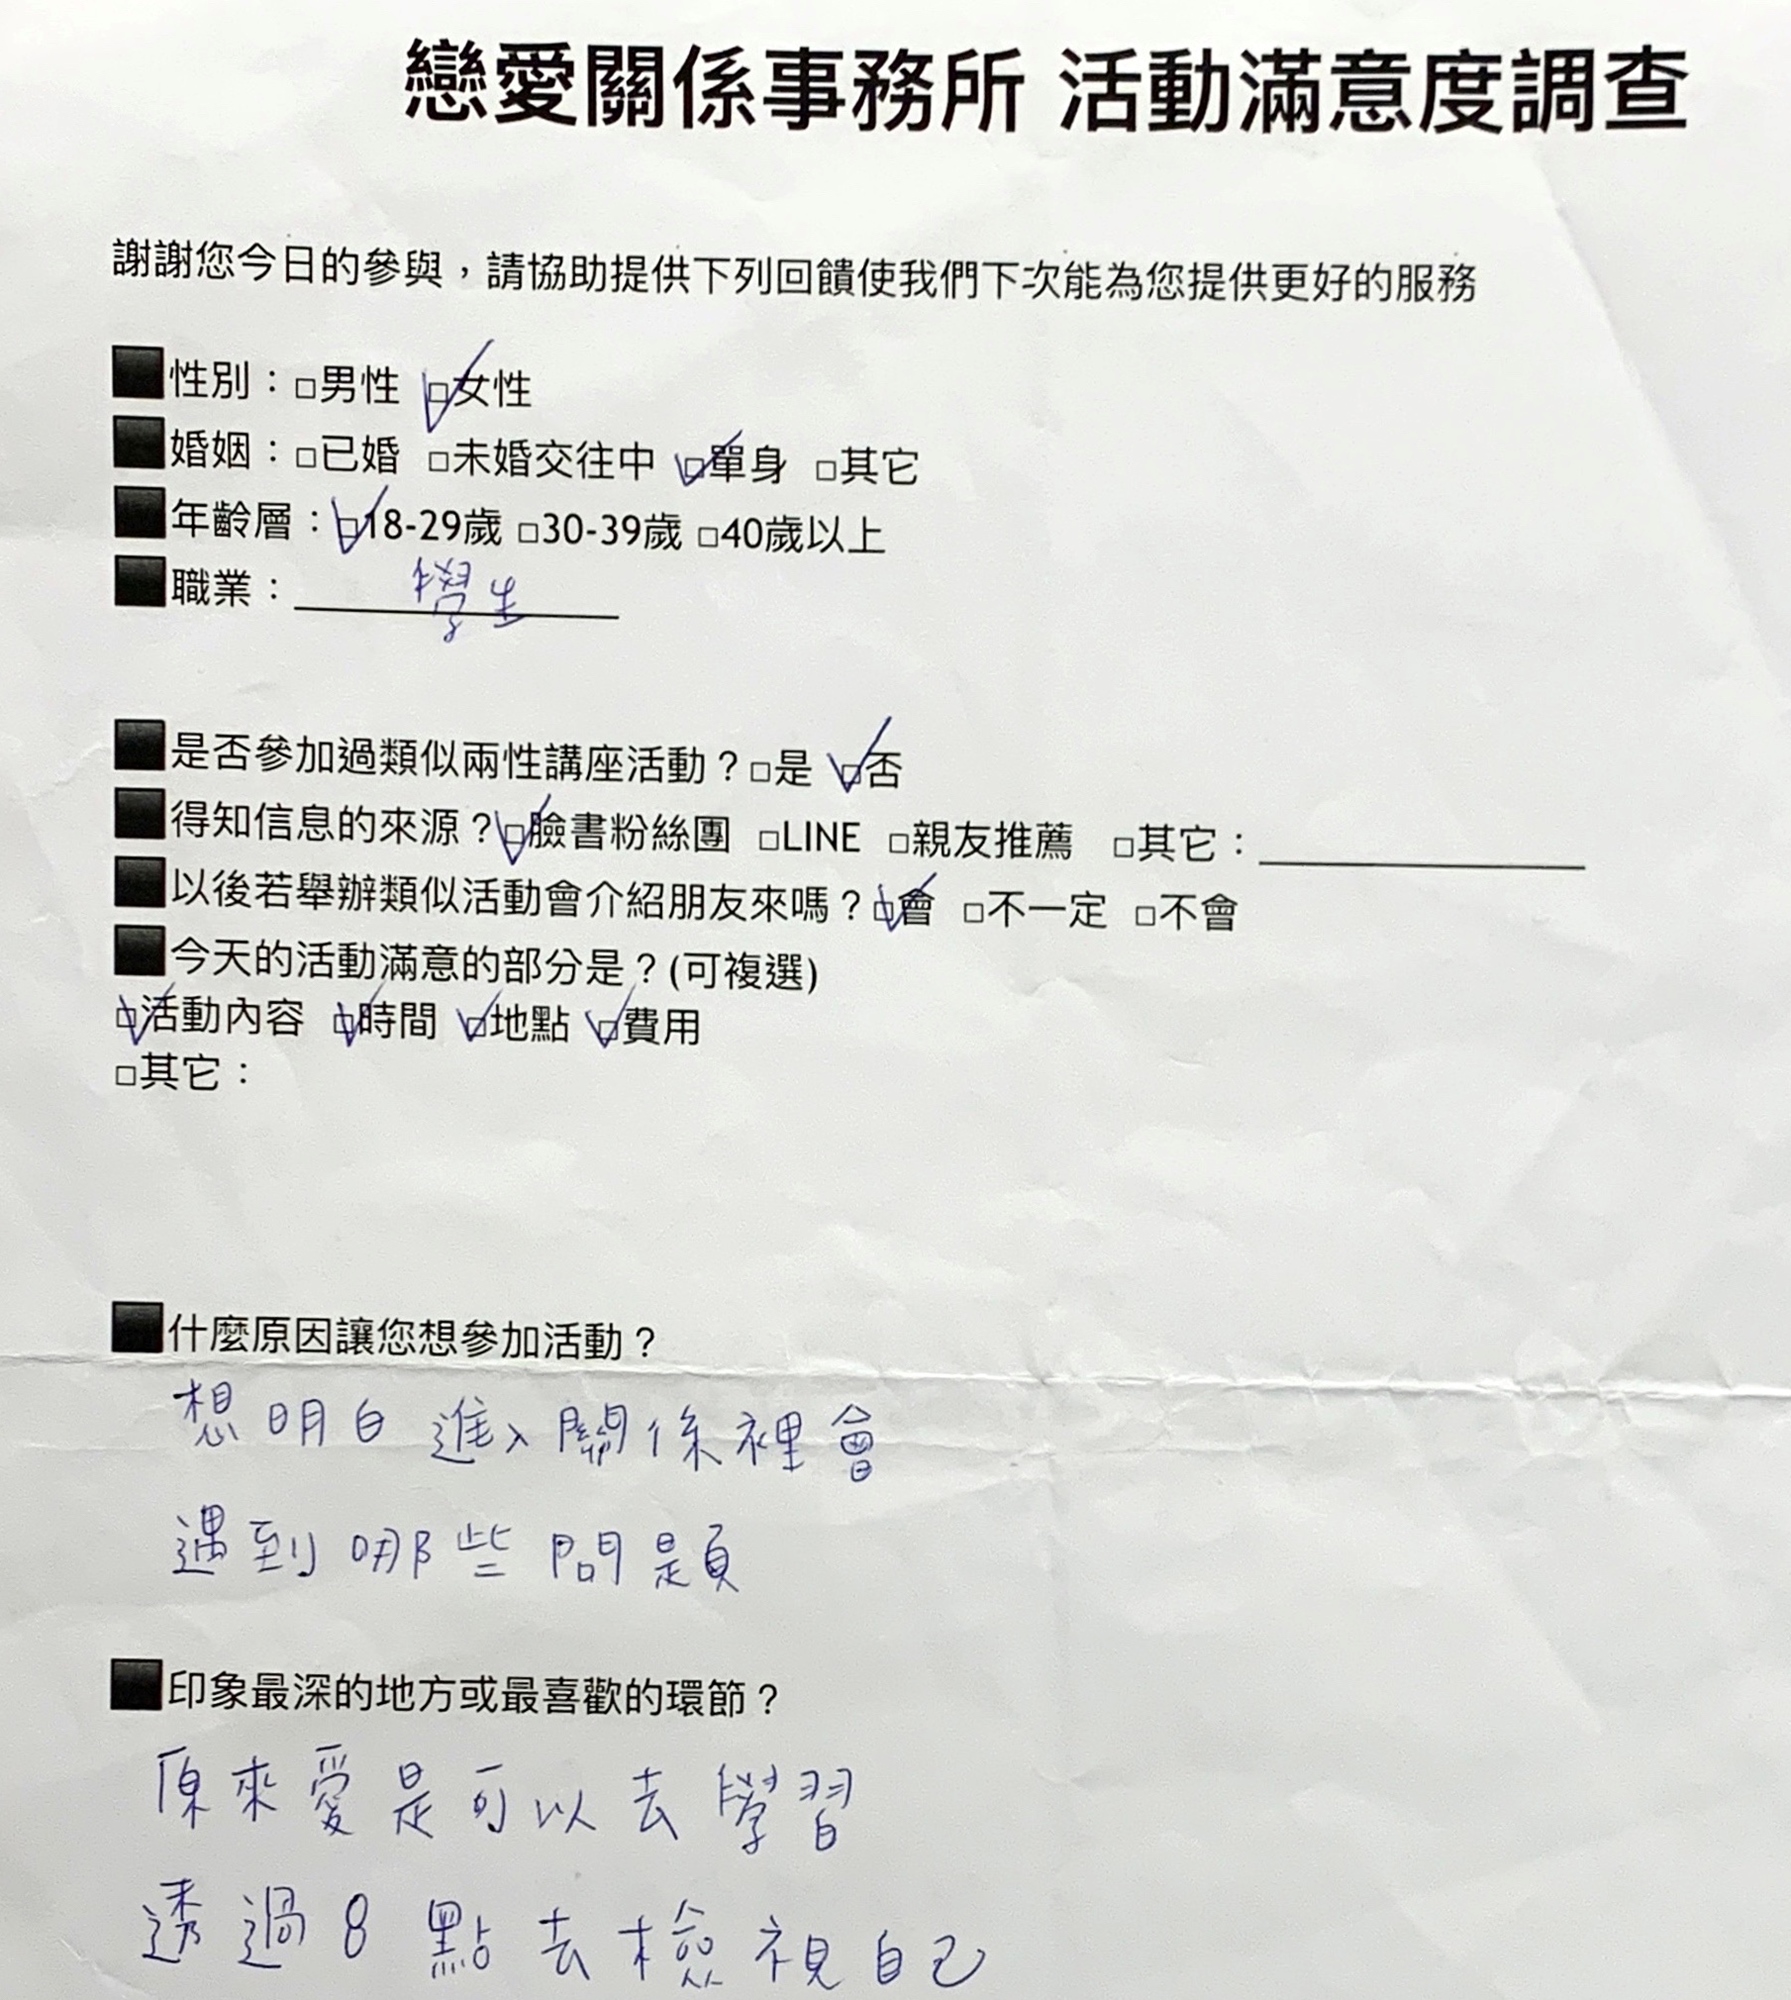 戀愛關係事務所 活動滿意度調查
謝謝您今日的參與，請協助提供下列回饋使我們下次能為您提供更好的服務
■性別：□男性 ☑女性
■婚姻：□已婚 □未婚交往中 ☑單身 □其它
■年齡層：☑18-29歲 □30-39歲 □40歲以上
■職業：學生
■是否參加過類似兩性講座活動？□是 ☑否
■得知信息的來源？☑臉書粉絲團 □LINE □親友推薦 □其它：
■以後若舉辦類似活動會介紹朋友來嗎？☑會 □不一定 □不會
■今天的活動滿意的部分是？(可複選)
☑活動內容 ☑時間 ☑地點 ☑費用
□其它：
■什麼原因讓您想參加活動？
想明白進入關係裡會
遇到哪些問題
■印象最深的地方或最喜歡的環節？
原來愛是可以去學習
透過8點去檢視自己